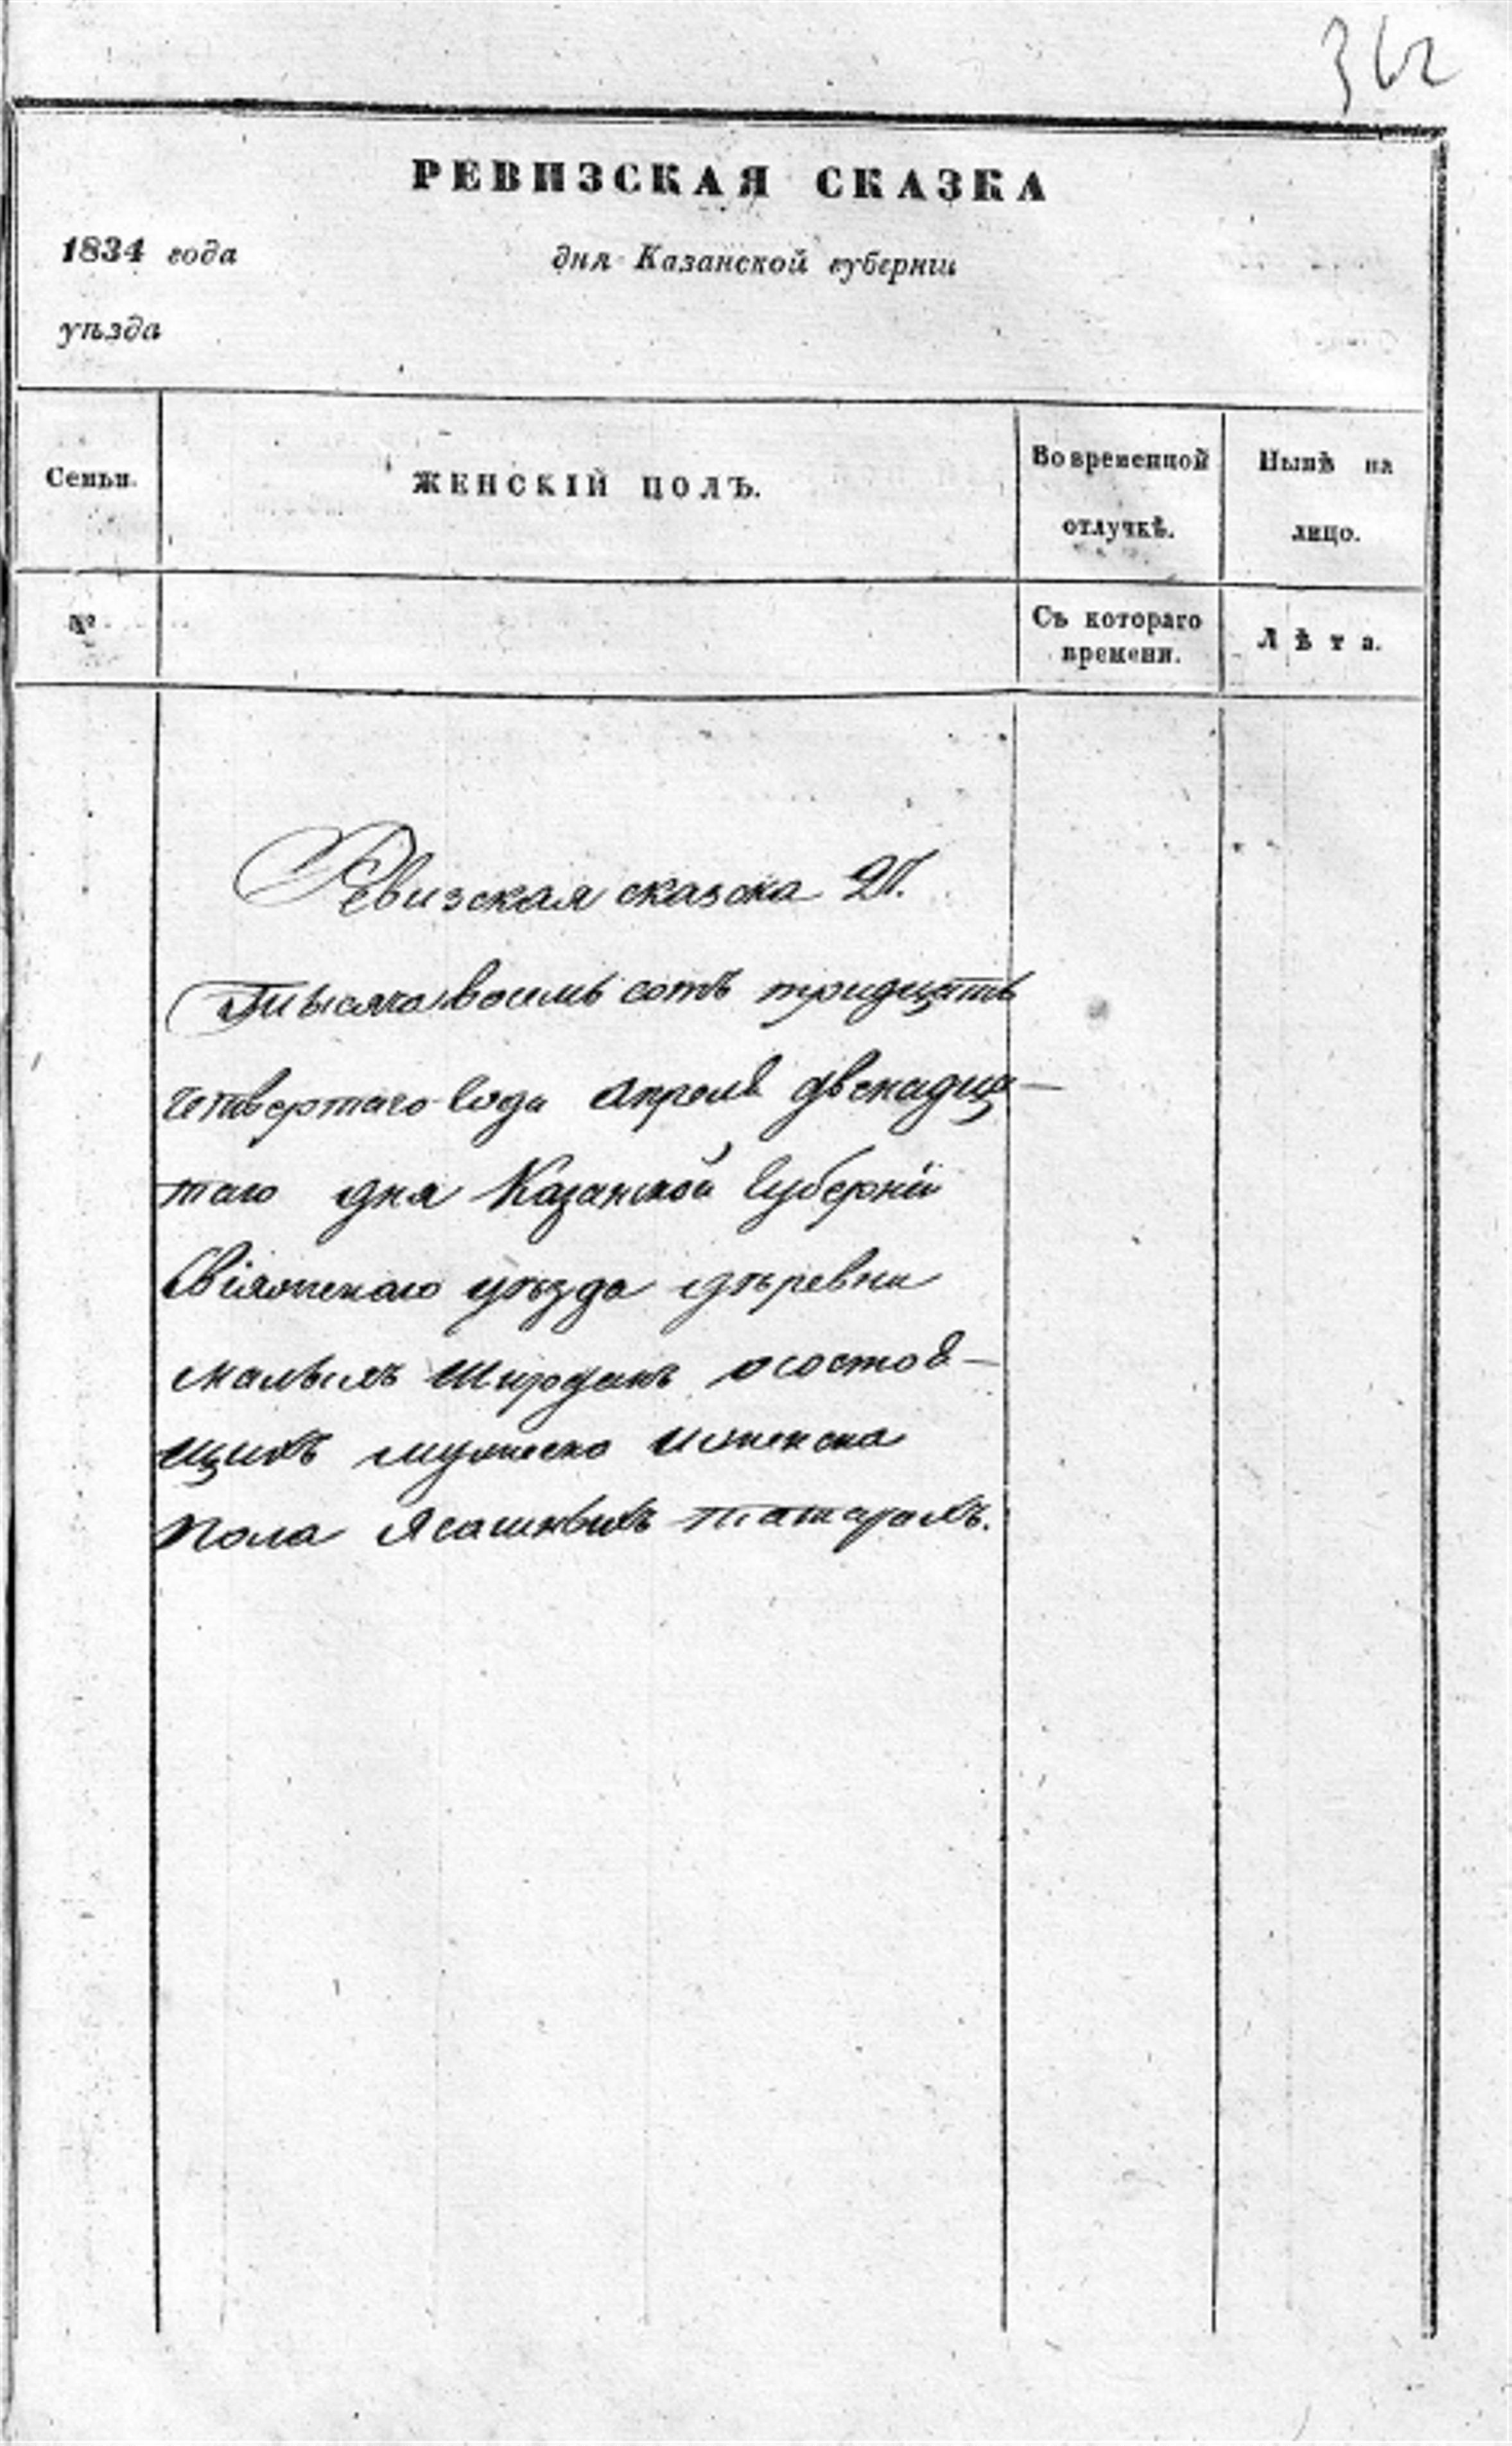 362
РЕВИЗСКАЯ СКАЗКА
1834 года дня Казанской губернiи
уѣзда
Семьи. ЖЕНСКIЙ ПОЛЪ. Во временной отлучкѣ. Нынѣ на лицо.
№ Съ котораго времени. Лѣта.
Ревизская сказка
Тысяча восемь сотъ тридцать
четвертаго года апреля двенадца-
таго дня Казанской губернiи
Свiяжскаго уѣзда дѣревни
малыхъ Ширданъ о состоя-
щихъ мужеска и женска
пола ясашныхъ татарахъ.